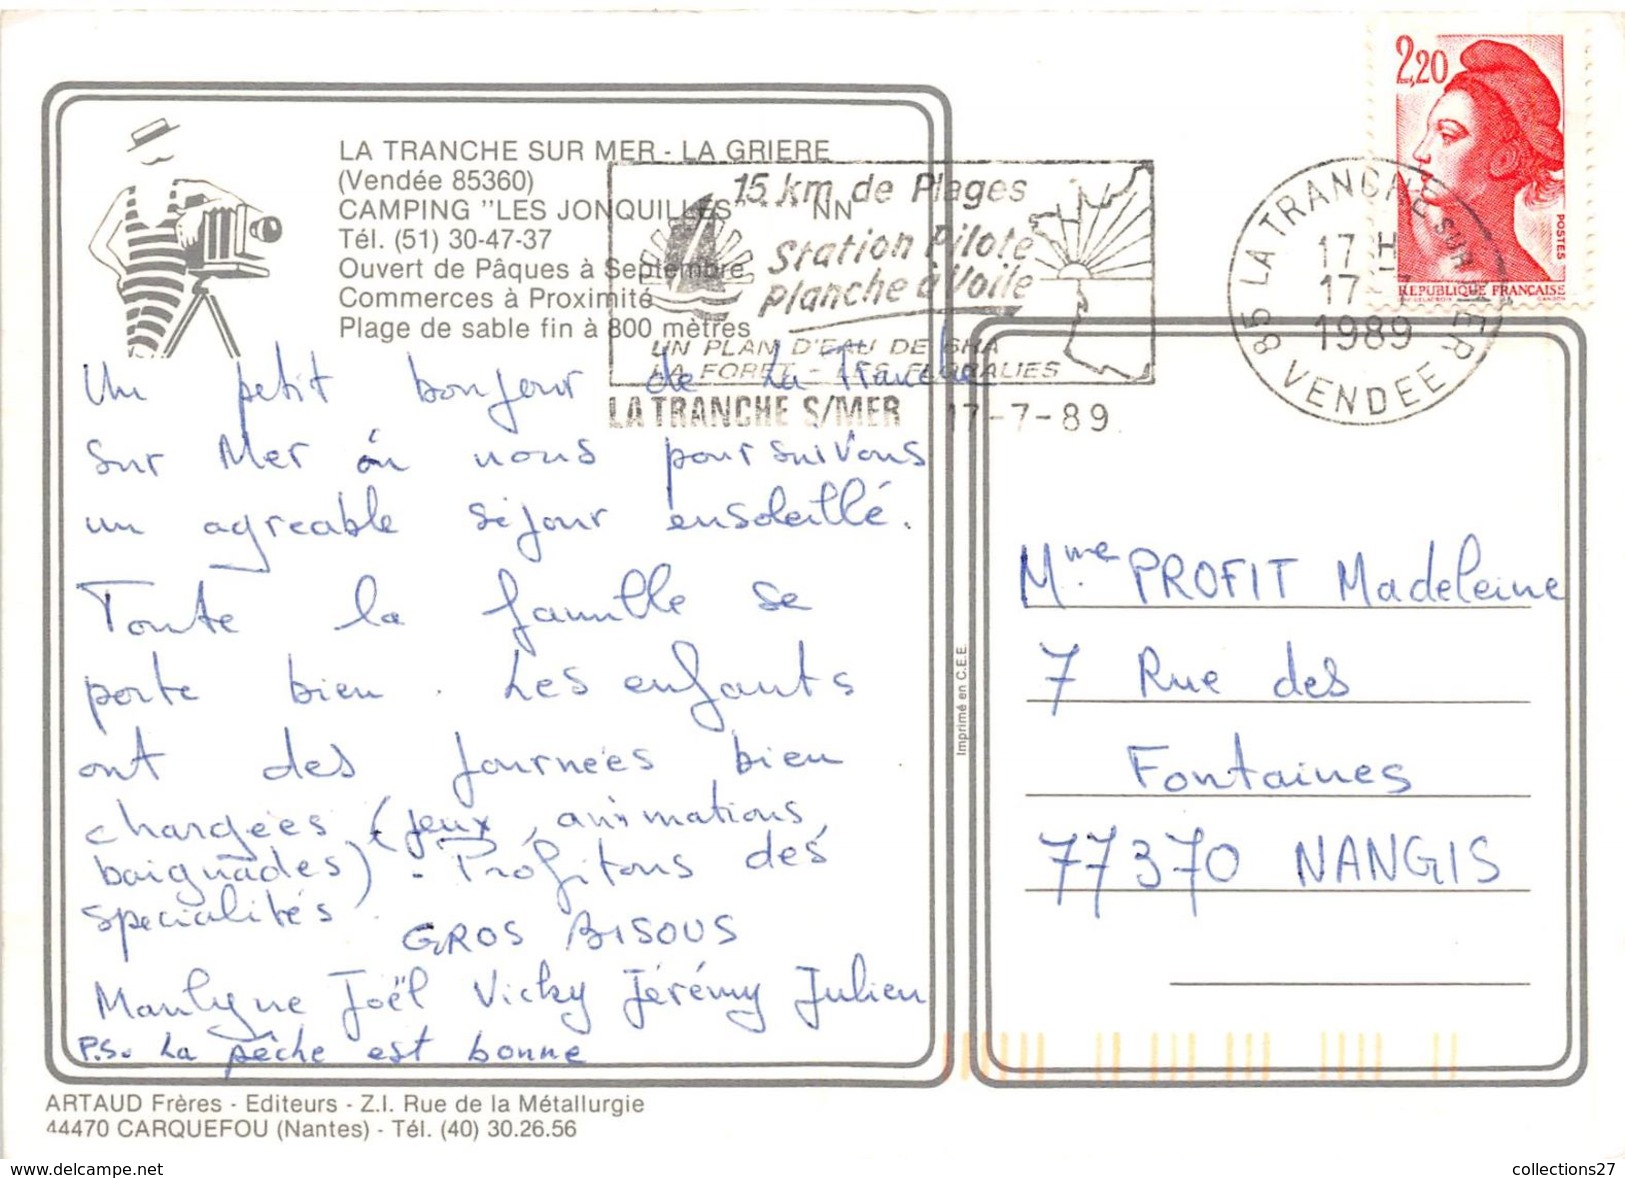 2,20
POSTES
REPUBLIQUE FRANÇAISE
LA TRANCHE SUR MER - LA GRIERE
(Vendée 85360)
CAMPING "LES JONQUILLES"**** NN
Tél. (51) 30-47-37
Ouvert de Pâques à Septembre
Commerces à Proximité
Plage de sable fin à 800 mètres
15 km de Plages
Station Pilote
planche à Voile
UN PLAN D'EAU DE 6HA
LA FORET - LES FLORALIES
LA TRANCHE S/MER 17-7-89
85 LA TRANCHE SUR MER
17 H
17
1989
VENDEE
Un petit bonjour de La Tranche
sur Mer où nous poursuivons
un agréable séjour ensoleillé.
Toute la famille se
porte bien. Les enfants
ont des journées bien
chargées (jeux, animations,
baignades). Profitons des
spécialités.
GROS BISOUS
Joël Vicky Jérémy Julien
P.S. La pêche est bonne
Imprimé en C.E.E.
Mme PROFIT Madeleine
7 Rue des
Fontaines
77370 NANGIS
ARTAUD Frères - Editeurs - Z.I. Rue de la Métallurgie
44470 CARQUEFOU (Nantes) - Tél. (40) 30.26.56
www.delcampe.net
collections27